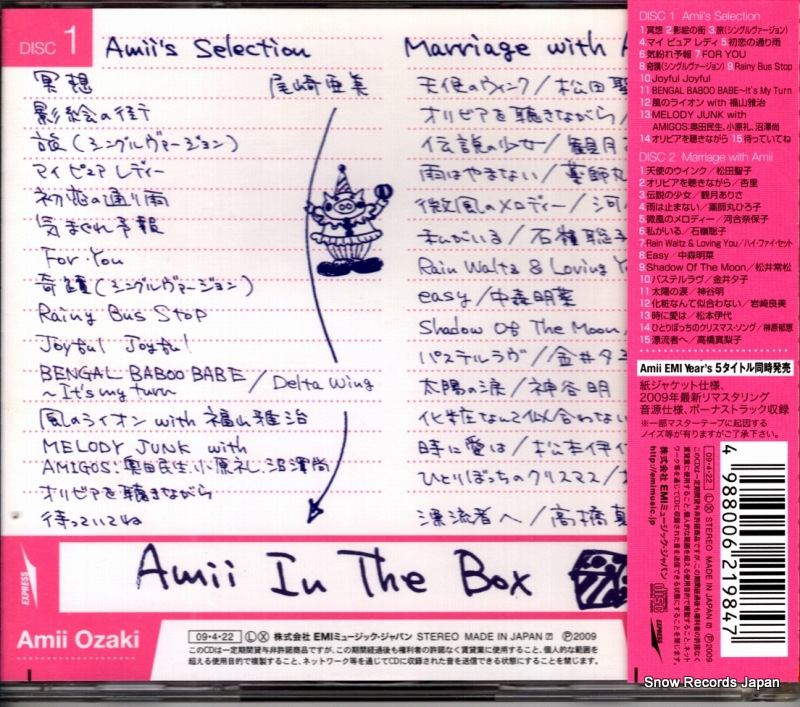 DISC 1
Amii's Selection
尾崎亜美
冥想
影絵の街で
旅(シングルヴァージョン)
マイ ピュア レディー
初恋の通り雨
気まぐれ予報
For・You
奇蹟(シングルヴァージョン)
Rainy Bus Stop
Joyful Joyful
BENGAL BABOO BABE
~It's my turn
/ Delta Wing
風のライオン with 福山雅治
MELODY JUNK with
AMIGOS:奥田民生、小原礼、沼澤尚
オリビアを聴きながら
待っていてね
Marriage with A
天使のウィンク/松田聖
オリビアを聴きながら/
伝説の少女/観月
雨はやまない/薬師丸
微風のメロディー/河
私がいる/石嶺聡子
Rain Waltz & Loving Yo
easy/中森明菜
Shadow Of The Moon/
パステルラヴ/金井夕子
太陽の涙/神谷明
化粧なんて似合わない
時に愛は/松本伊代
ひとりぼっちのクリスマス/
漂流者へ/高橋真
Amii In The Box
EXPRESS
Amii Ozaki
09・4・22 Ⓛ Ⓧ 株式会社 EMIミュージック・ジャパン STEREO MADE IN JAPAN ℗2009
このCDは一定期間貸与非許諾商品ですが、この期間経過後も権利者の許諾なく賃貸業に使用すること、個人的な範囲を
超える使用目的で複製すること、ネットワーク等を通じてCDに収録された音を送信できる状態にすることを禁じます。
DISC 1 Amii's Selection
1 冥想 2 影絵の街 3 旅(シングルヴァージョン)
4 マイ ピュア レディ 5 初恋の通り雨
6 気紛れ予報 7 FOR YOU
8 奇蹟(シングルヴァージョン) 9 Rainy Bus Stop
10 Joyful Joyful
11 BENGAL BABOO BABE~It's My Turn
12 風のライオン with 福山雅治
13 MELODY JUNK with
AMIGOS:奥田民生、小原礼、沼澤尚
14 オリビアを聴きながら 15 待っていてね
DISC 2 Marriage with Amii
1 天使のウインク/松田聖子
2 オリビアを聴きながら/杏里
3 伝説の少女/観月ありさ
4 雨は止まない/薬師丸ひろ子
5 微風のメロディー/河合奈保子
6 私がいる/石嶺聡子
7 Rain Waltz & Loving You/ハイ・ファイ・セット
8 Easy/中森明菜
9 Shadow Of The Moon/松井常松
10 パステルラヴ/金井夕子
11 太陽の涙/神谷明
12 化粧なんて似合わない/岩崎良美
13 時に愛は/松本伊代
14 ひとりぼっちのクリスマス・ソング/榊原郁恵
15 漂流者へ/高橋真梨子
Amii EMI Year's 5タイトル同時発売
紙ジャケット仕様、
2009年最新リマスタリング
音源仕様、ボーナストラック収録
※一部マスターテープに起因する
ノイズ等が有りますがご了承下さい。
09・4・22 Ⓛ Ⓧ STEREO MADE IN JAPAN ℗2009
このCDは一定期間貸与非許諾商品ですが、この期間経過後も権利者の許諾なく
賃貸業に使用すること、個人的な範囲を超える使用目的で複製すること、ネット
ワーク等を通じてCDに収録された音を送信できる状態にすることを禁じます。
株式会社 EMIミュージック・ジャパン
http://emimusic.jp
EXPRESS
4 988006 219847
Snow Records Japan